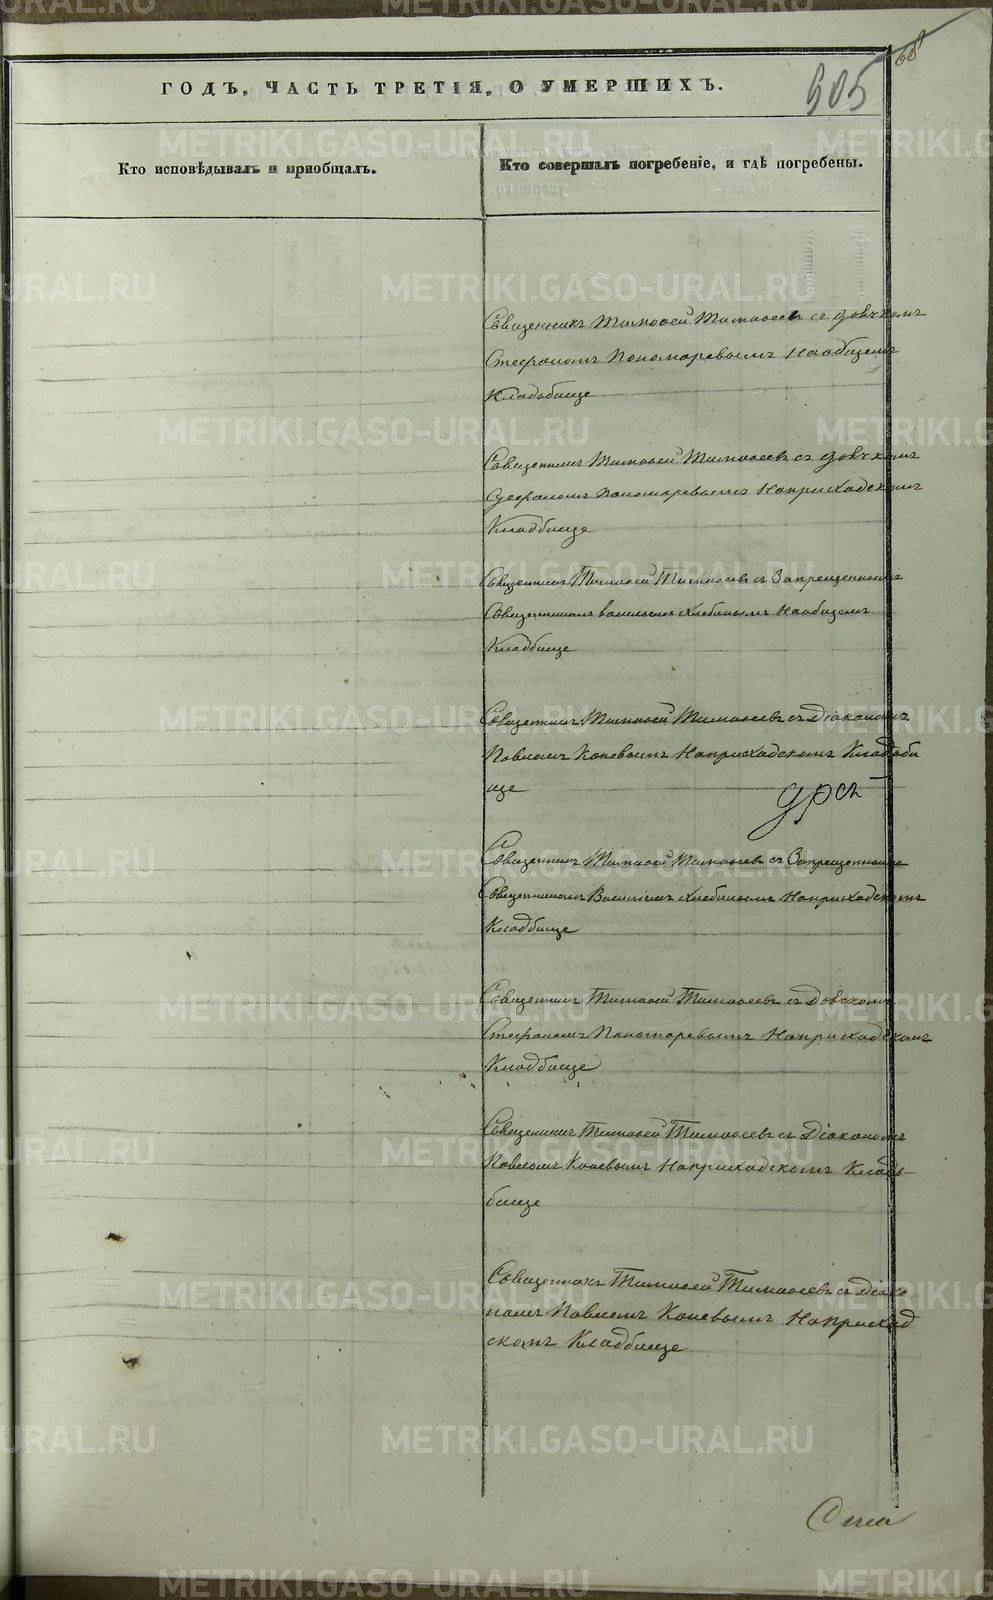 68
605
ГОДЪ, ЧАСТЬ ТРЕТІЯ, О УМЕРШИХЪ.
Кто исповѣдывалъ и приобщалъ.
Кто совершалъ погребеніе, и гдѣ погребены.
Священникъ Тимофей Тимофеевъ съ дьячкомъ
Стефаномъ Пономаревымъ На общемъ
Кладбище
Священникъ Тимофей Тимофеевъ съ дьячкомъ
Стефаномъ Пономаревымъ На приходскомъ
Кладбище
Священникъ Тимофей Тимофеевъ съ Запрещеннымъ
Священникомъ Васильемъ Хлебинымъ На общемъ
Кладбище
Священникъ Тимофей Тимофеевъ съ Діакономъ
Павломъ Коневымъ На приходскомъ Кладби
ще
Священникъ Тимофей Тимофеевъ съ Запрещеннымъ
Священникомъ Василіемъ Хлебинымъ На приходскомъ
Кладбище
Священникъ Тимофей Тимофеевъ съ Дьячкомъ
Стефаномъ Пономаревымъ На приходскомъ
Кладбище
Священникъ Тимофей Тимофеевъ съ Діакономъ
Павломъ Коневымъ На приходскомъ Кладь-
бище
Священникъ Тимофей Тимофеевъ съ Діако
номъ Павломъ Коневымъ На приход
скомъ Кладбище
METRIKI.GASO-URAL.RU